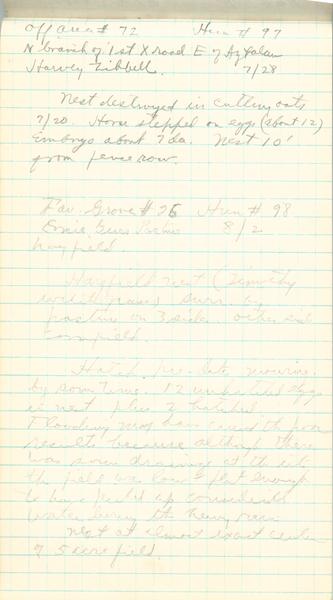 Off area # 72 Hun # 97
N branch of 1st X road E of Aztalan
Harvey 7/28
Nest destroyed in cutting oats
7/20. Horse stepped on eggs (about 12)
Embryo about 7 da. Nest 10'
from fence row.
Fav. Grove # 26 Hun # 98
8/2
hayfield.
Hayfield nest (Timothy
surr. by
pasture on 3 sides. other side
cornfield.
Hatch
by some time. 12 unhatched eggs
in nest plus 2 hatched.
Flooding may have caused the poor
results because although there
was some drainage at the site,
the field was low & flat enough
to have piled up considerable
water during the heavy rain.
Nest at almost exact center
of 5 acre field.